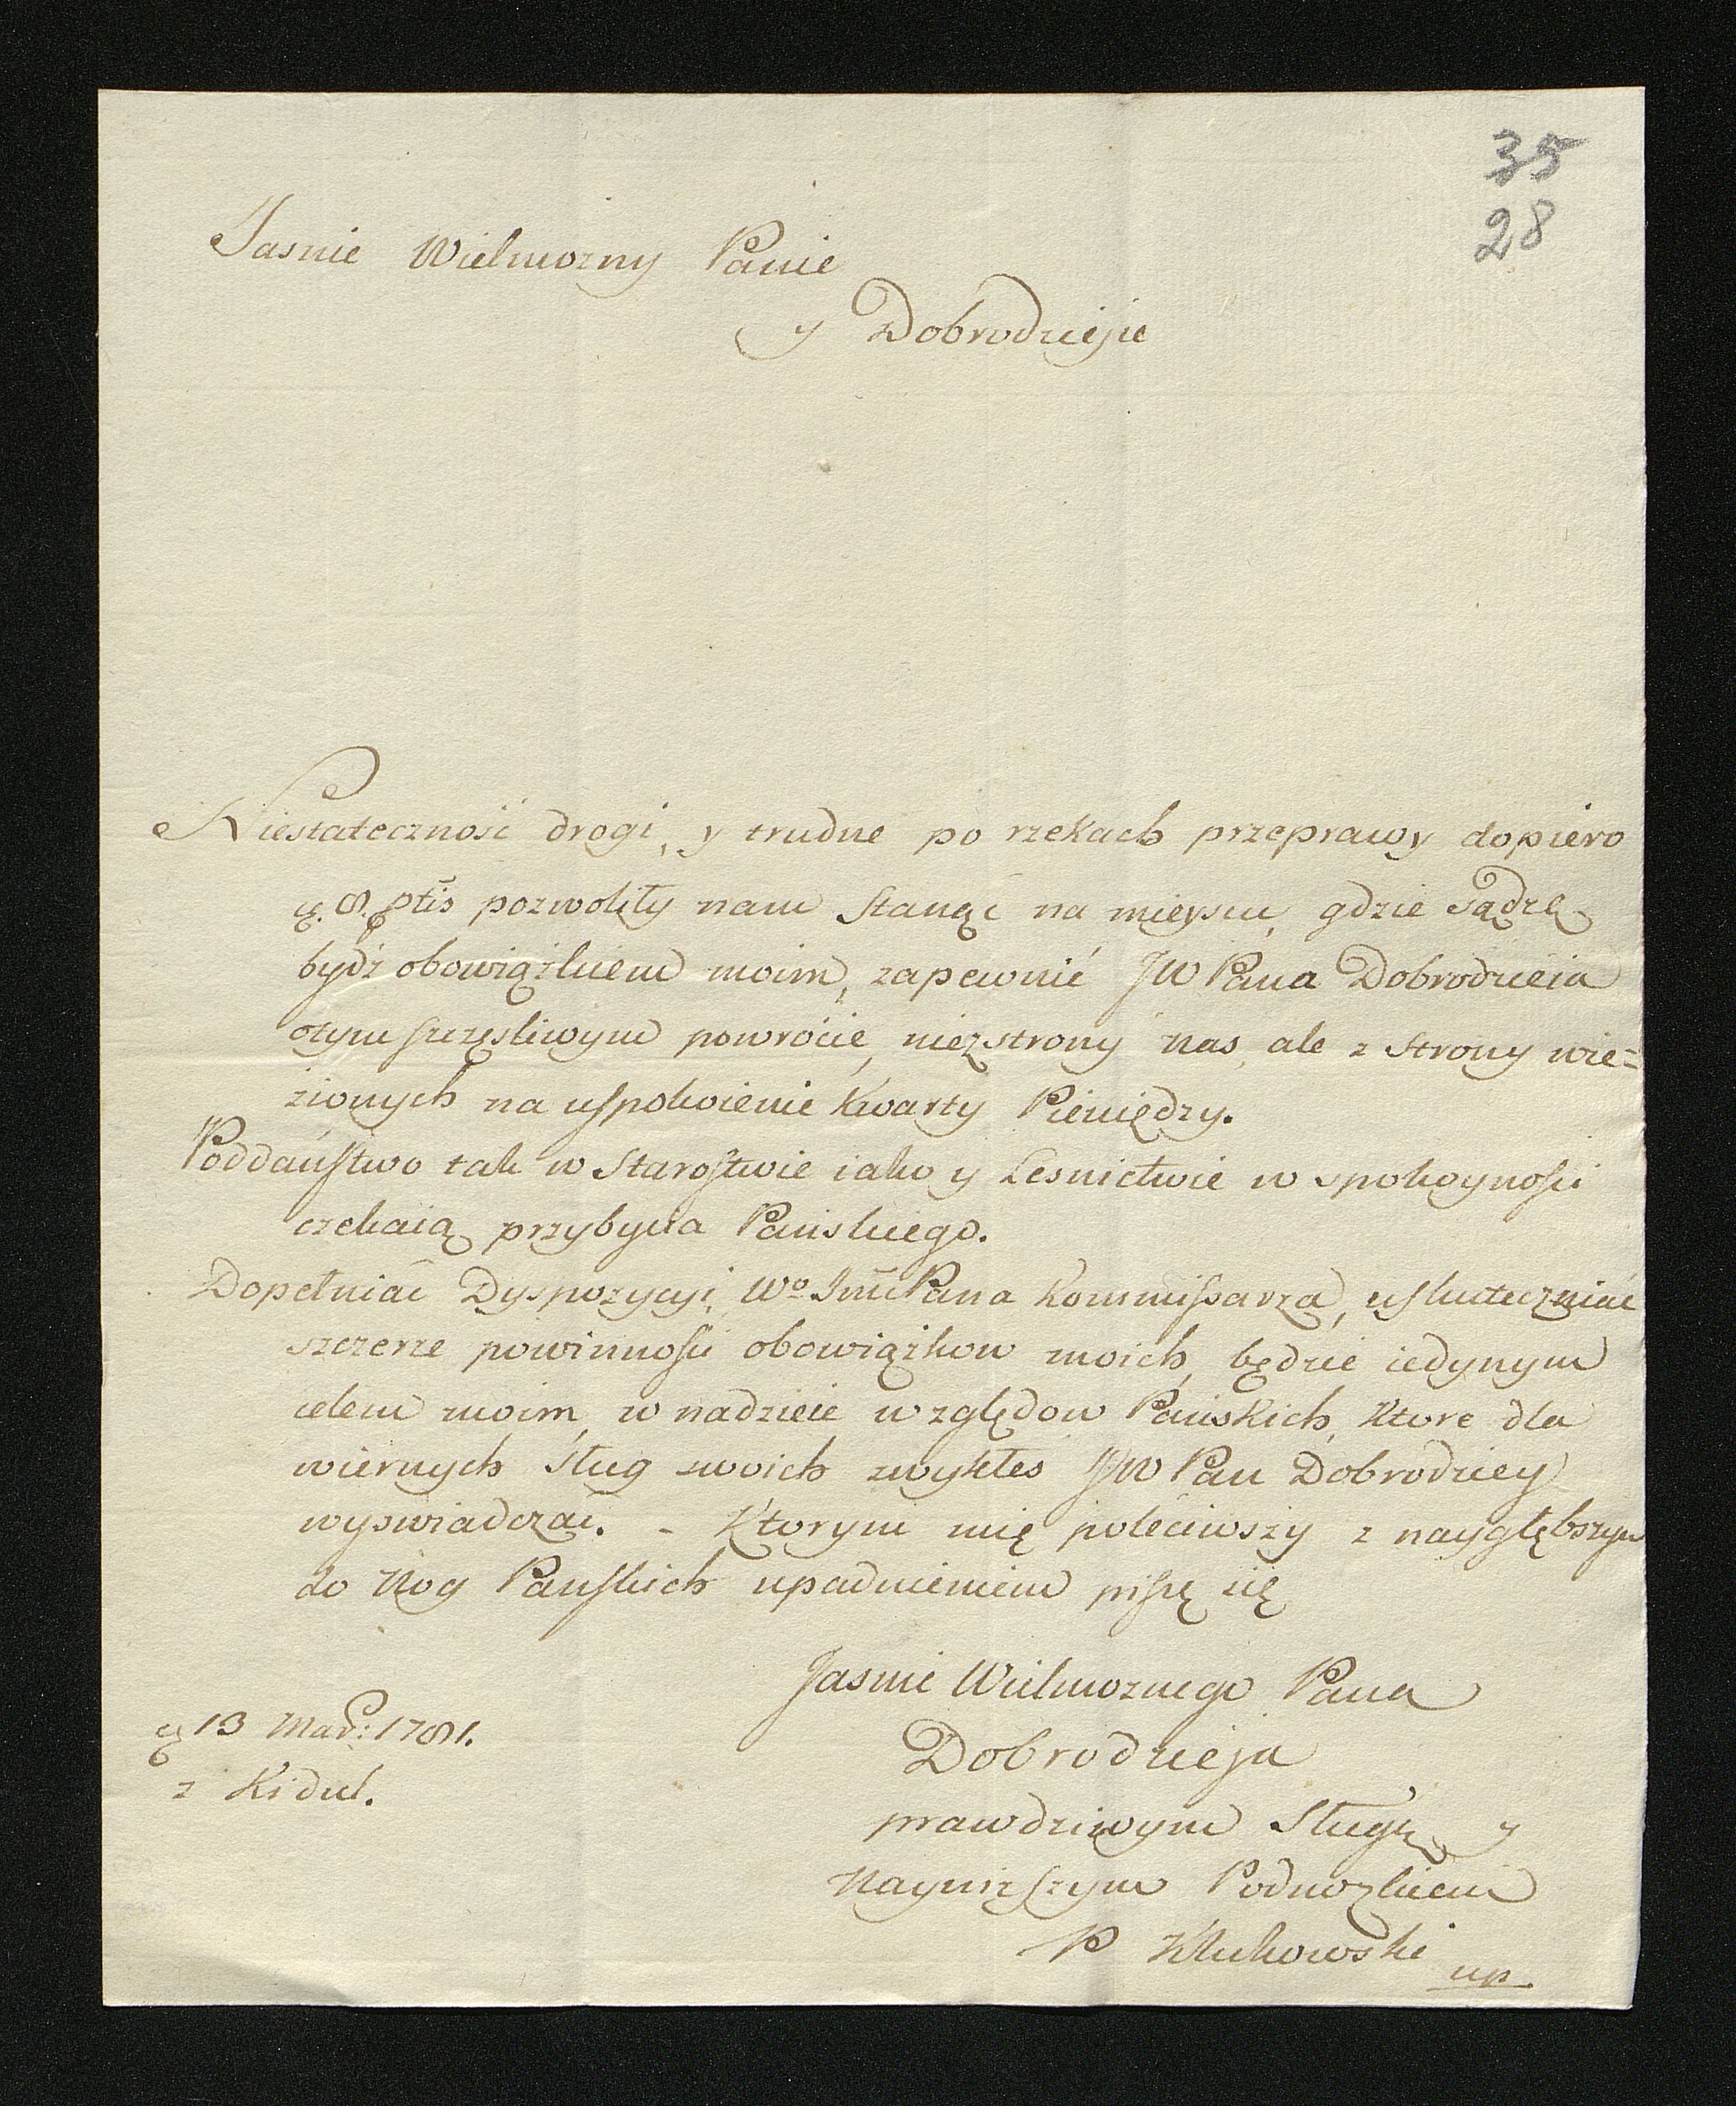 35
28
Jasnie Wielmozny Panie
y Dobrodzieju
Niestateczność drogi, y trudne po rzekach przeprawy dopiero
8. ptis pozwoliły nam stanąć na mieyscu, gdzie sądzę
bydź obowiązkiem moim, zapewnić JW Pana Dobrodzieia
otym szczęsliwym powrócie, niezstrony nas, ale z strony wie=
zionych na uspokoienie kwarty Pieniędzy.
Poddaństwo tak w Starostwie iako y Lesnictwie w spokoynosci
czekaią przybycia Pańskiego.
Dopełniać Dyspozycyi Wo Jmć Pana Kommissarza, uskuteczniać
szczerze powinnosci obowiązkow moich, będzie iedynym
celem moim, w nadzieie względow Pańskich, ktore dla
wiernych sług swoich zwykłes JW Pan Dobrodziey
wyswiadczać. - Ktorym mię poleciwszy z naygłębszym
do Nog Panskich upadnieniem piszę się
Jasnie Wielmoznego Pana
Dobrodzieja
prawdziwym Sługą y
Nayniższym Podnozkiem
P Klukowski
mp
13 Mar: 1781.
z Kidul.